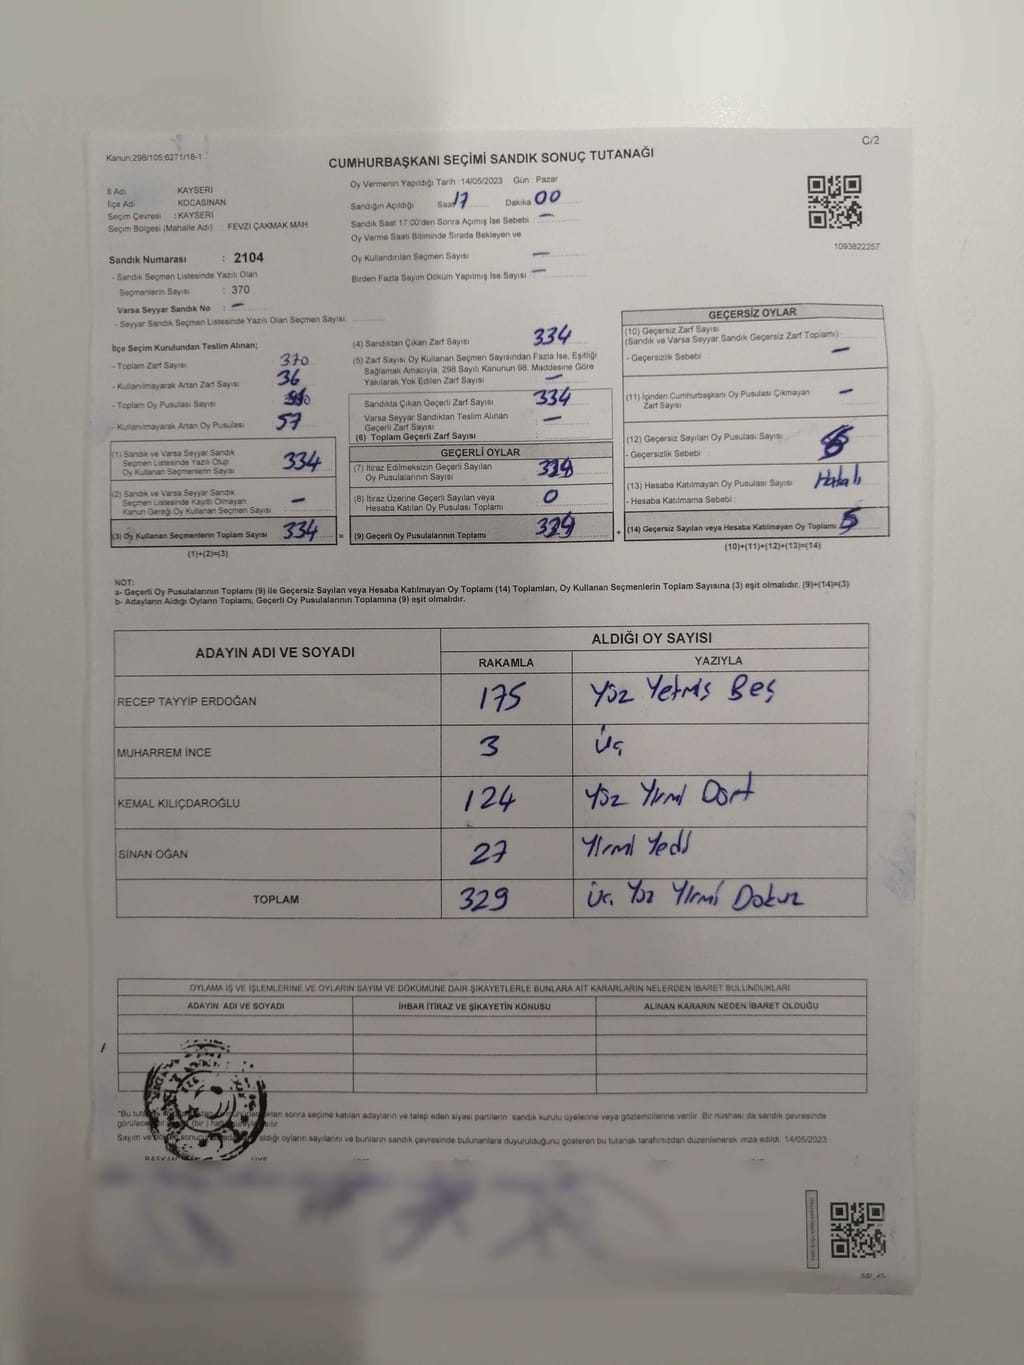 C/2
Kanun:298/105;6271/18-1
CUMHURBAŞKANI SEÇİMİ SANDIK SONUÇ TUTANAĞI
İl Adı KAYSERİ
İlçe Adı KOCASİNAN
Seçim Çevresi : KAYSERİ
Seçim Bölgesi (Mahalle Adı) : FEVZİ ÇAKMAK MAH
Oy Vermenin Yapıldığı Tarih : 14/05/2023 Gün : Pazar
Sandığın Açıldığı Saat 17 Dakika 00
Sandık Saat 17:00'den Sonra Açmış İse Sebebi : –
Oy Verme Saati Bitiminde Sırada Bekleyen ve
Oy Kullandırılan Seçmen Sayısı –
Birden Fazla Sayım Döküm Yapılmış İse Sayısı : –
1093822257
Sandık Numarası : 2104
- Sandık Seçmen Listesinde Yazılı Olan
Seçmenlerin Sayısı : 370
Varsa Seyyar Sandık No : –
- Seyyar Sandık Seçmen Listesinde Yazılı Olan Seçmen Sayısı:
İlçe Seçim Kurulundan Teslim Alınan;
- Toplam Zarf Sayısı 370
- Kullanılmayarak Artan Zarf Sayısı 36
- Toplam Oy Pusulası Sayısı
- Kullanılmayarak Artan Oy Pusulası 57
(1) Sandık ve Varsa Seyyar Sandık
Seçmen Listesinde Yazılı Olup
Oy Kullanan Seçmenlerin Sayısı 334
(2) Sandık ve Varsa Seyyar Sandık
Seçmen Listesinde Kayıtlı Olmayan
Kanun Gereği Oy Kullanan Seçmen Sayısı : –
(3) Oy Kullanan Seçmenlerin Toplam Sayısı 334
(1)+(2)=(3)
(4) Sandıktan Çıkan Zarf Sayısı 334
(5) Zarf Sayısı Oy Kullanan Seçmen Sayısından Fazla İse, Eşitliği
Sağlamak Amacıyla, 298 Sayılı Kanunun 98. Maddesine Göre
Yakılarak Yok Edilen Zarf Sayısı –
Sandıkta Çıkan Geçerli Zarf Sayısı 334
Varsa Seyyar Sandıktan Teslim Alınan
Geçerli Zarf Sayısı –
(6) Toplam Geçerli Zarf Sayısı :
GEÇERLİ OYLAR
(7) İtiraz Edilmeksizin Geçerli Sayılan
Oy Pusulalarının Sayısı
(8) İtiraz Üzerine Geçerli Sayılan veya
Hesaba Katılan Oy Pusulası Toplamı 0
= (9) Geçerli Oy Pusulalarının Toplamı 329
GEÇERSİZ OYLAR
(10) Geçersiz Zarf Sayısı
(Sandık ve Varsa Seyyar Sandık Geçersiz Zarf Toplamı)
- Geçersizlik Sebebi –
(11) İçinden Cumhurbaşkanı Oy Pusulası Çıkmayan
Zarf Sayısı –
(12) Geçersiz Sayılan Oy Pusulası Sayısı
- Geçersizlik Sebebi :
(13) Hesaba Katılmayan Oy Pusulası Sayısı Hatalı
- Hesaba Katılmama Sebebi :
+ (14) Geçersiz Sayılan veya Hesaba Katılmayan Oy Toplamı 5
(10)+(11)+(12)+(13)=(14)
NOT:
a- Geçerli Oy Pusulalarının Toplamı (9) ile Geçersiz Sayılan veya Hesaba Katılmayan Oy Toplamı (14) Toplamları, Oy Kullanan Seçmenlerin Toplam Sayısına (3) eşit olmalıdır. (9)+(14)=(3)
b- Adayların Aldığı Oyların Toplamı, Geçerli Oy Pusulalarının Toplamına (9) eşit olmalıdır.
ADAYIN ADI VE SOYADI ALDIĞI OY SAYISI
RAKAMLA YAZIYLA
RECEP TAYYİP ERDOĞAN 175 Yüz Yetmiş Beş
MUHARREM İNCE 3 Üç
KEMAL KILIÇDAROĞLU 124 Yüz Yirmi Dört
SİNAN OĞAN 27 Yirmi Yedi
TOPLAM 329 Üç Yüz Yirmi Dokuz
OYLAMA İŞ VE İŞLEMLERİNE VE OYLARIN SAYIM VE DÖKÜMÜNE DAİR ŞİKAYETLERLE BUNLARA AİT KARARLARIN NELERDEN İBARET BULUNDUKLARI
ADAYIN ADI VE SOYADI İHBAR İTİRAZ VE ŞİKAYETİN KONUSU ALINAN KARARIN NEDEN İBARET OLDUĞU
"Bu sonra seçime katılan adayların ve talep eden siyasi partilerin sandık kurulu üyelerine veya gözlemcilerine verilir. Bir nüshası da sandık çevresinde
(bir)
Sayım ve aldığı oyların sayılarını ve bunların sandık çevresinde bulunanlara duyurulduğunu gösteren bu tutanak tarafımızdan düzenlenerek imza edildi. 14/05/2023
BAŞKAN ÜYE